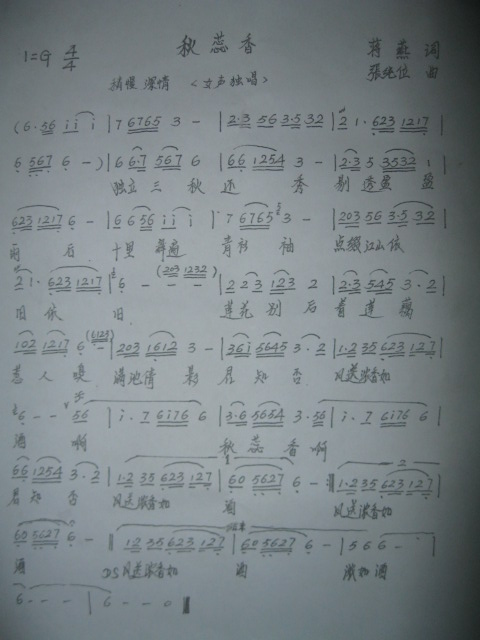 秋蕊香
1=G 4/4 蒋燕 词
稍慢 深情 <女声独唱> 张纯位 曲
(6·56 i i i | 7 6765 3 - | 2·3 56 3·5 32 | 2 1· 623 1217 |
6 567 6 -) | 6 6·7 567 6 | 66 1254 3 - | 2·3 5 3532 1 |
独立三秋还 秀 别透盈 盈
623 1217 6 - | 6 656 i i i | 7 6765 3 - | 203 56 3·5 32 |
雨 后 十里 青衫 袖 点缀江山依
2 1· 623 1217 | 6 - - - (203 1232) | 2 23 123 2 | 2·3 545 3·2 |
旧 依 旧 莲花 别 后 莲 藕
102 1217 6 - (6123) | 203 1612 3 - | 36i 5645 3·2 | 1·2 35 623 127 |
惹 人 嗅 满池倩 影 君 知 否 风送浓香如
6 - - 56 | i· 7 6i76 6 | 3·6 5654 3·56 | i· 7 6i76 6 |
酒 啊 秋 蕊 香 啊
66 1254 3·2 | 1·2 35 623 127 | 60 5627 6 - | 1·2 35 623 127 |
君 知 否 风送浓香如 酒 风送浓香如
60 5627 6 - | 12 35 623 127 | 60 5627 6 - | 5 6 6 - |
酒 DS 风送浓香如 酒 浓如酒
6 - - - | 6 - - 0 ||